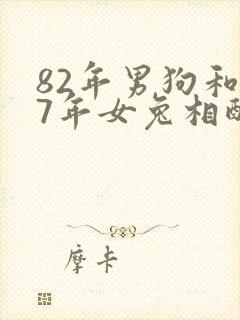 82年男狗和
7年女兔相配
摩卡